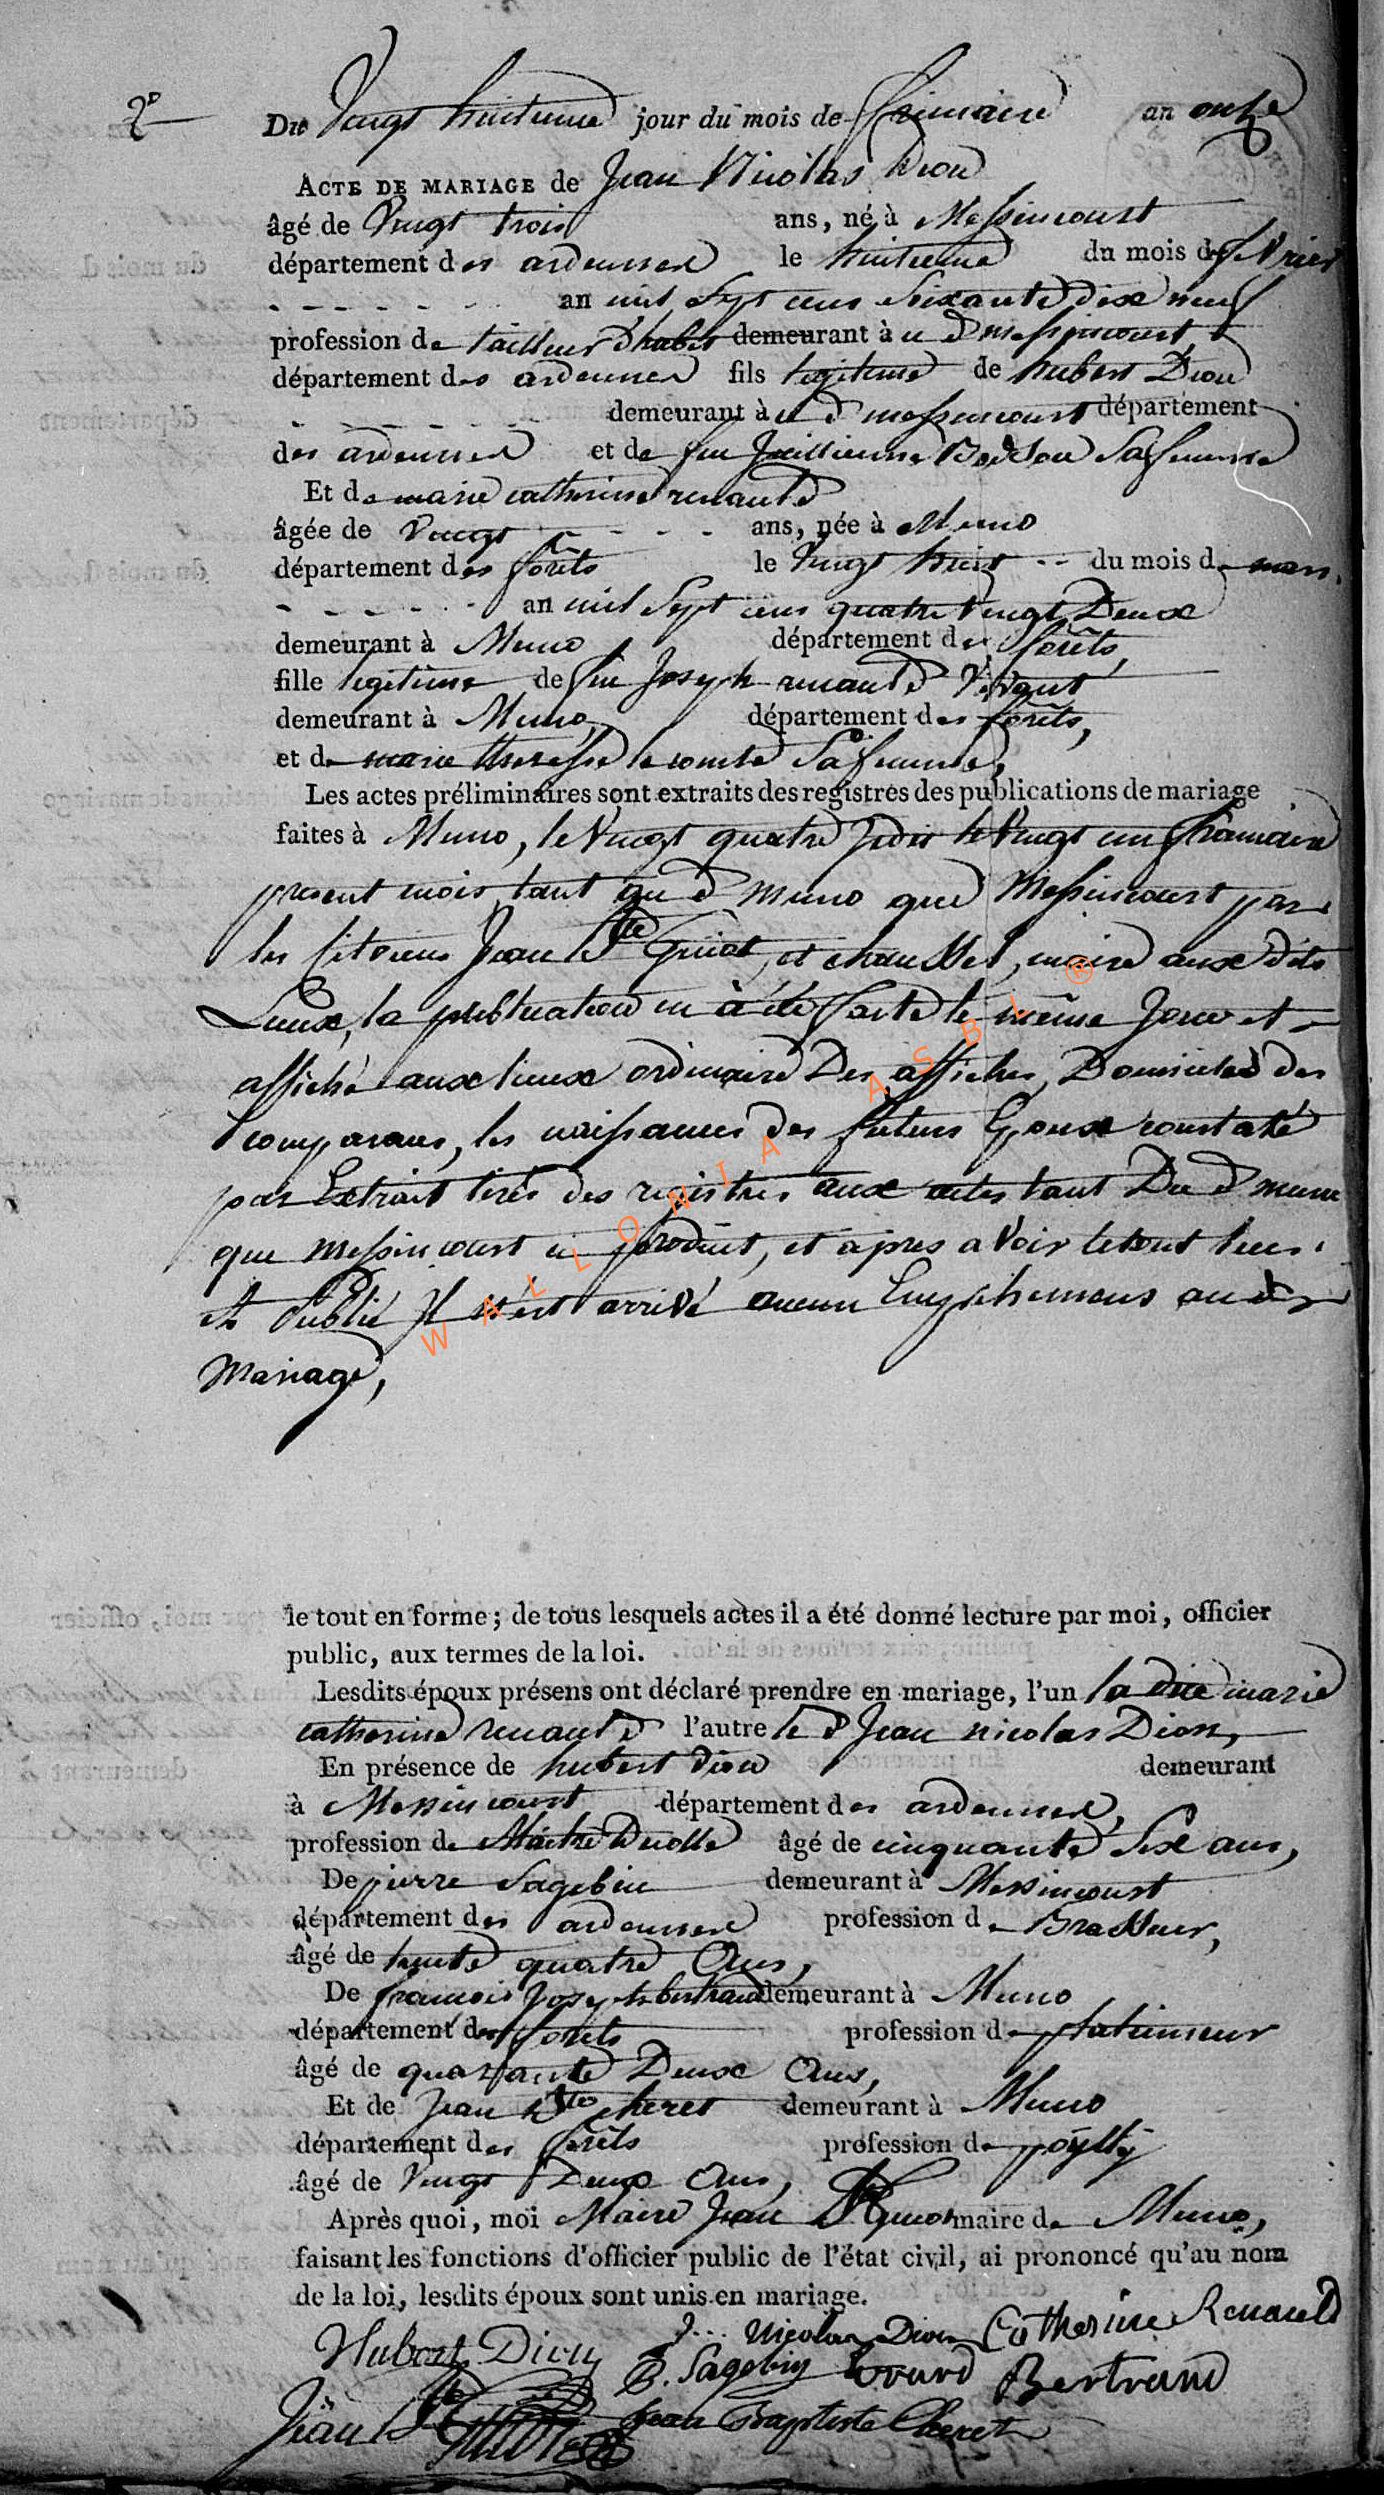 2e
Du Vingt huitieme jour du mois de frimaire an onze
ACTE DE MARIAGE de Jean Nicolas Dion
âgé de Vingt trois ans, né à Messincourt
département des ardennes le huitieme du mois de fevrier
an mil Sept cens Soixante dixe neuf
profession de tailleur d'habit demeurant à u d messincourt
département des ardennes fils legitime de hubert Dion
demeurant à u d messincourt département
des ardennes et de feu Juillienne Sa femme
Et de marie catherine renauld
âgée de Vingt ans, née à Muno
département des forêts le Vingt huit du mois de mars
an mil Sept cens quatre Vingt Deux
demeurant à Muno département des forêts,
fille legitime de feu Joseph renauld Vivant
demeurant à Muno, département des forêts,
et de marie theresse lecomte Sa femme,
Les actes préliminaires sont extraits des registres des publications de mariage
faites à Muno, le Vingt quatre le Vingt un frimaire
present mois, tant qu'd muno que Messincourt par
les Citoiens Jean Bte Guiot, et chausset, maire aux dits
Lieux, la publication en à été faite le même Jour et
affiché aux lieux ordinaire Des affiches, Domicile des
comparans, les naissances des futurs Epoux constaté
par Extrait tirés des registres aux actes tant Du d muno
que messincourt en produit, et apres avoir letout lues
et Publié Il n'est arrivé aucun Empechemens audt
Mariage,
le tout en forme; de tous lesquels actes il a été donné lecture par moi, officier
public, aux termes de la loi.
Lesdits époux présens ont déclaré prendre en mariage, l'un la dite marie
catherine renauld l'autre le d Jean nicolas Dion,
En présence de hubert dion demeurant
à Messincourt département des ardennes,
profession de Maitre Decolle âgé de cinquante Six ans,
De pierre Sagebin demeurant à Messincourt
département des ardennes profession de Brasseur,
âgé de trente quatre Ans,
De francois Joseph bertrand demeurant à Muno
département des forêts profession de platineur
âgé de quarante Deux Ans,
Et de Jean Bte cheret demeurant à Muno
département des forêts profession de
âgé de Vingt Deux Ans,
Après quoi, moi Maire Jean Bte Guiot maire de Muno,
faisant les fonctions d'officier public de l'état civil, ai prononcé qu'au nom
de la loi, lesdits époux sont unis en mariage.
J... Nicolas Dion Catherine Renauld
Hubert Dion P. Sagebin Bertrand
Jean Bte Guiot Jean Baptiste Cheret
WALLONIA ASBL ®